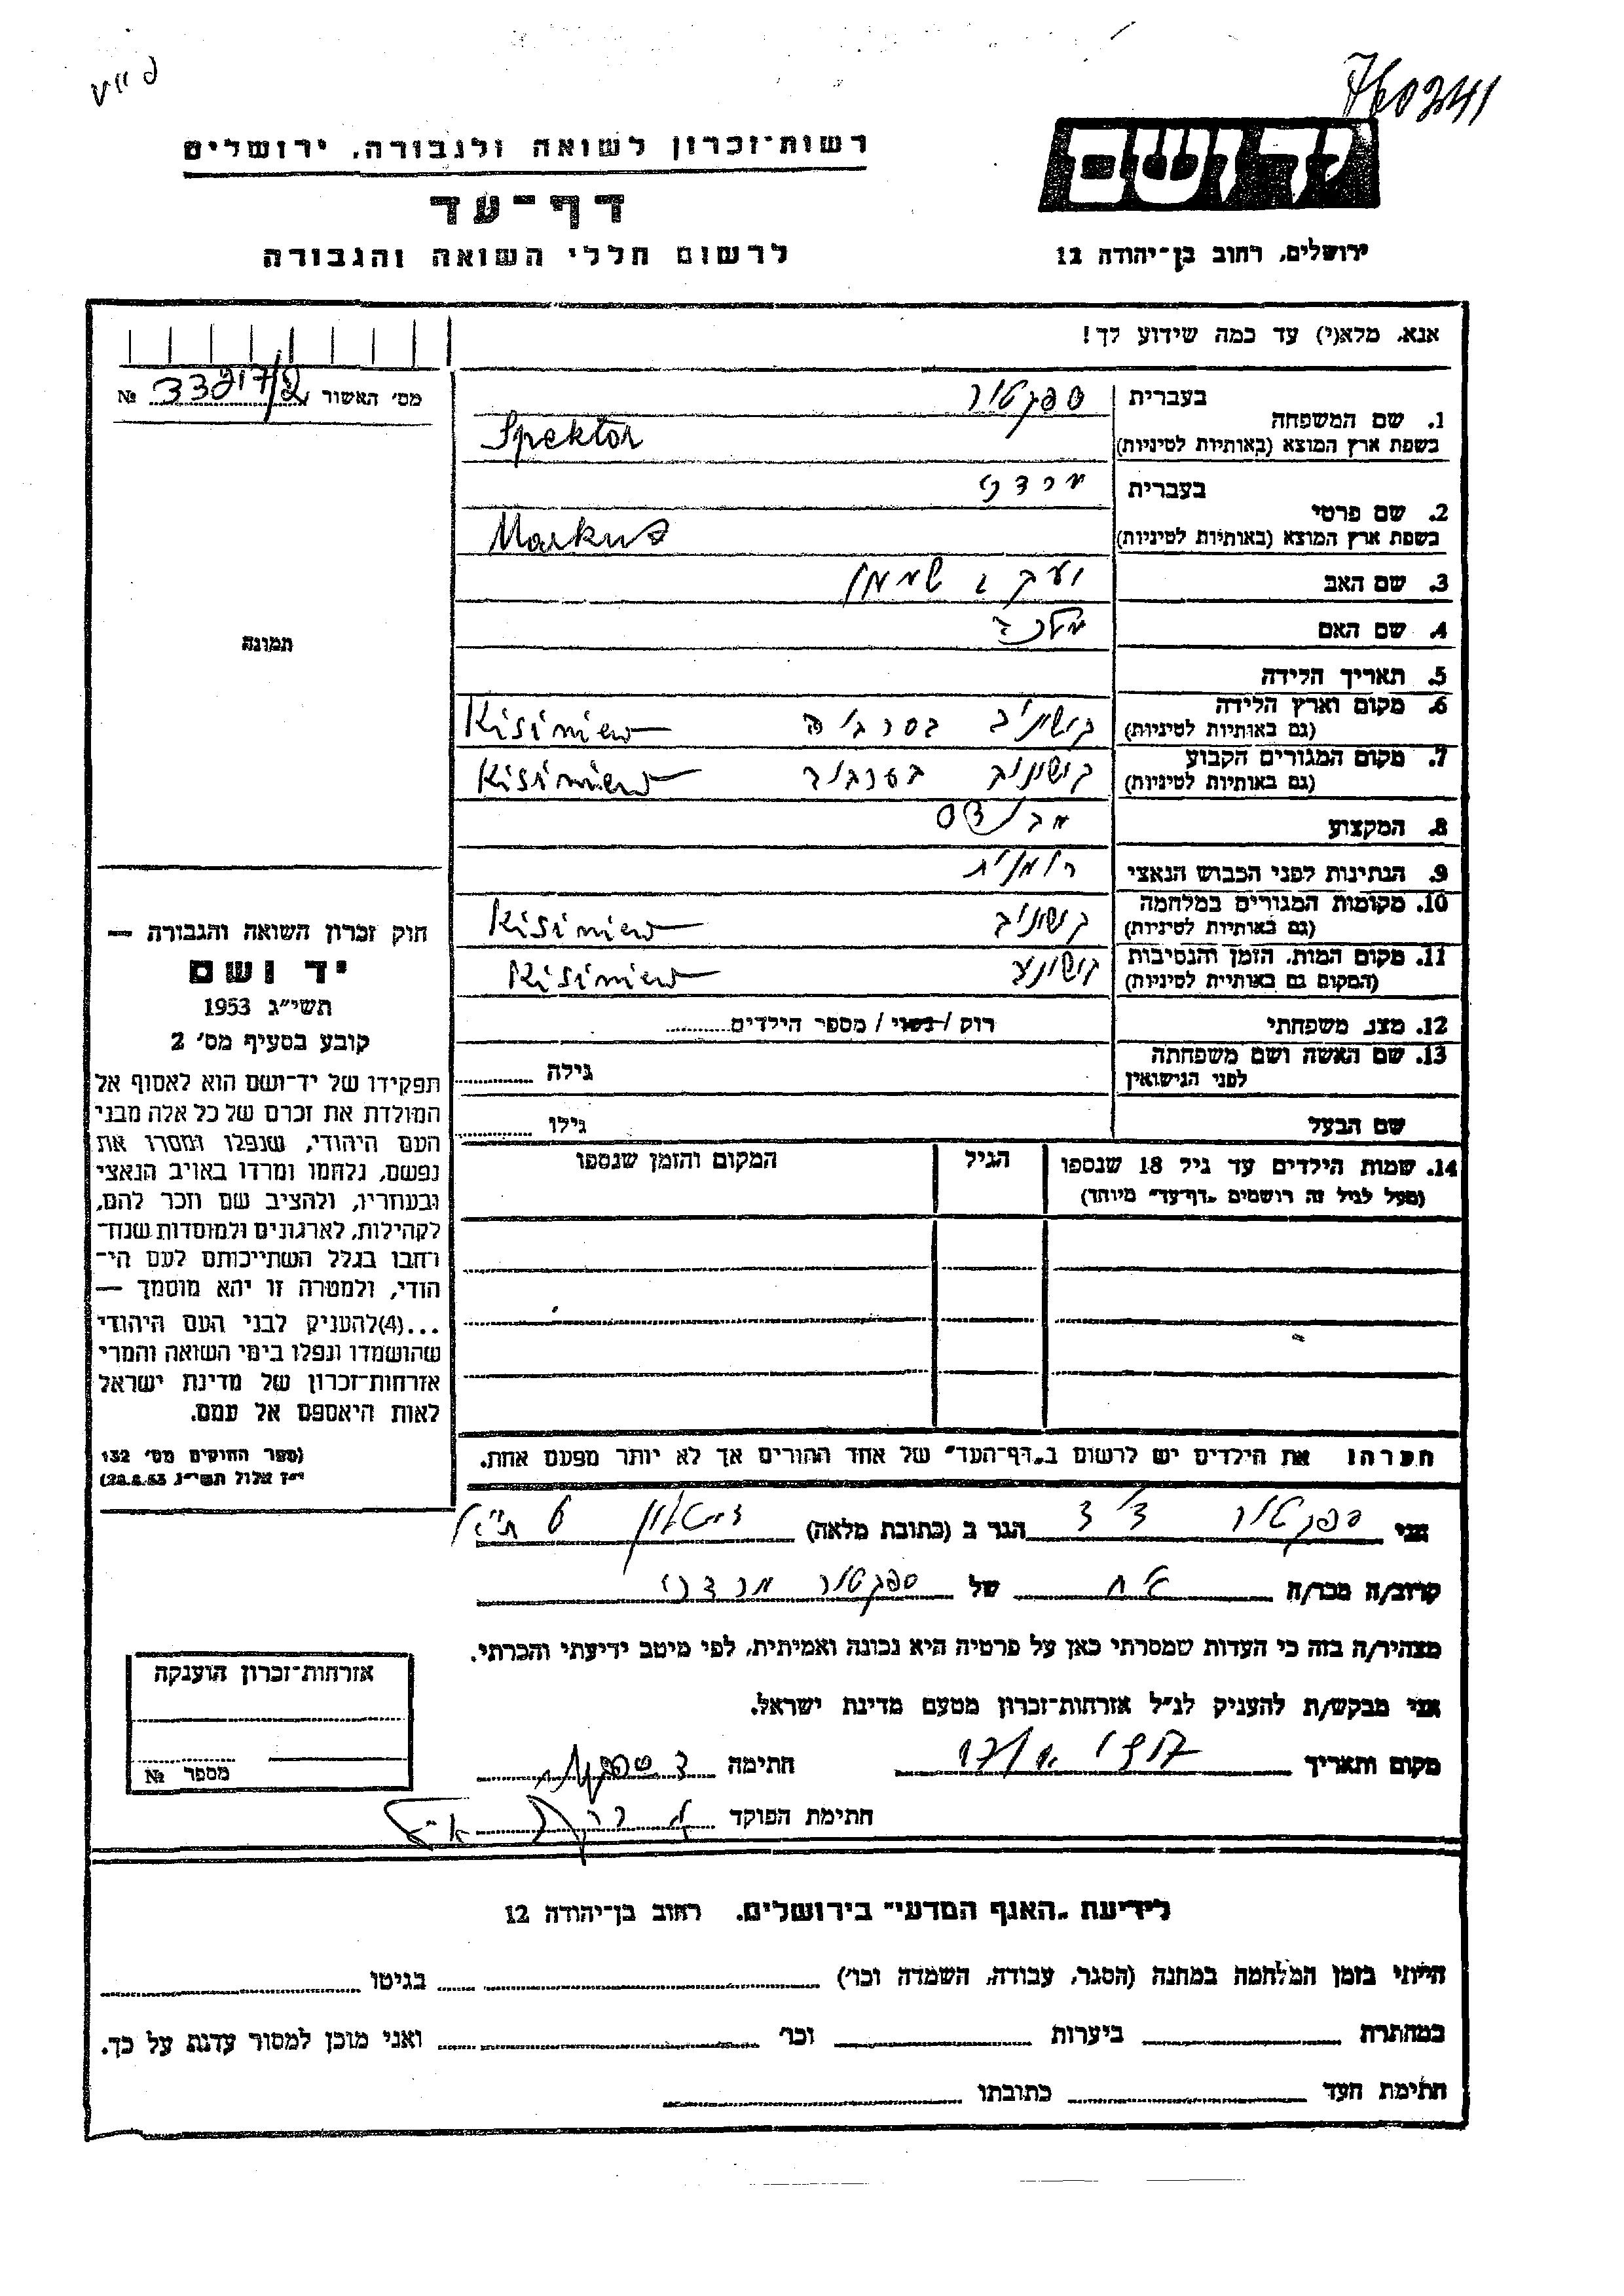 760241
רשות־זכרון לשואה ולגבורה, ירושלים
יד ושם
דף־עד
לרשום חללי השואה והגבורה
ירושלים, רחוב בן־יהודה 12
אנא, מלא(י) עד כמה שידוע לך!
מס' האשור № 33217/2
1. שם המשפחה
בעברית ספקטור
בשפת ארץ המוצא (באותיות לטיניות) Spektor
2. שם פרטי
בעברית מרדכי
בשפת ארץ המוצא (באותיות לטיניות) Markus
3. שם האב
4. שם האם מלכה
5. תאריך הלידה
6. מקום וארץ הלידה קישינייב בסרביה Kisiniew
(גם באותיות לטיניות)
7. מקום המגורים הקבוע קישינייב Kisiniew
(גם באותיות לטיניות)
8. המקצוע
9. הנתינות לפני הכבוש הנאצי רומנית
10. מקומות המגורים במלחמה קישינייב Kisiniew
(גם באותיות לטיניות)
11. מקום המות, הזמן והנסיבות Kisiniew
(המקום גם באותיות לטיניות)
12. מצב משפחתי רוק / נשוי / מספר הילדים
13. שם האשה ושם משפחתה גילה
לפני הנישואין
שם הבעל גילו
14. שמות הילדים עד גיל 18 שנספו הגיל המקום והזמן שנספו
(מעל לגיל זה רושמים "דף־עד" מיוחד)
תמונה
חוק זכרון השואה והגבורה —
יד ושם
תשי"ג 1953
קובע בסעיף מס' 2
תפקידו של יד־ושם הוא לאסוף אל
המולדת את זכרם של כל אלה מבני
העם היהודי, שנפלו ומסרו את
נפשם, נלחמו ומרדו באויב הנאצי
ובעוזריו, ולהציב שם וזכר להם,
לקהילות, לארגונים ולמוסדות שנח־
רבו בגלל השתייכותם לעם הי־
הודי, ולמטרה זו יהא מוסמך —
...(4)להעניק לבני העם היהודי
שהושמדו ונפלו בימי השואה והמרי
אזרחות־זכרון של מדינת ישראל
לאות היאספם אל עמם.
(ספר החוקים מס' 132
י"ז אלול תשי"ג, 28.8.53)
הערה: את הילדים יש לרשום ב"דף־העד" של אחד ההורים אך לא יותר מפעם אחת.
אני ספקטור הגר ב (כתובת מלאה)
קרוב/ה מכר/ה אח של ספקטור מרדכי
מצהיר/ה בזה כי העדות שמסרתי כאן על פרטיה היא נכונה ואמיתית, לפי מיטב ידיעתי והכרתי.
אני מבקש/ת להעניק לנ"ל אזרחות־זכרון מטעם מדינת ישראל.
מקום ותאריך חתימה
חתימת הפוקד
אזרחות־זכרון הוענקה
מספר №
לידיעת "האגף המדעי" בירושלים, רחוב בן־יהודה 12
הייתי בזמן המלחמה במחנה (הסגר, עבודה, השמדה וכו') בגיטו
במחתרת ביערות וכו' ואני מוכן למסור עדות על כך.
חתימת העד כתובתו